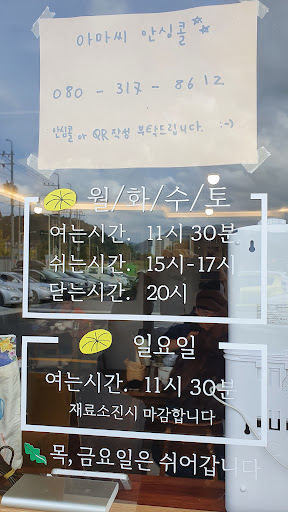 아마씨 안심콜
080 - 317 - 8612
안심콜 or QR작성 부탁드립니다. :-)
월/화/수/토
여는시간. 11시 30분
쉬는시간. 15시-17시
닫는시간. 20시
일요일
여는시간. 11시 30분
재료소진시 마감합니다
목, 금요일은 쉬어갑니다